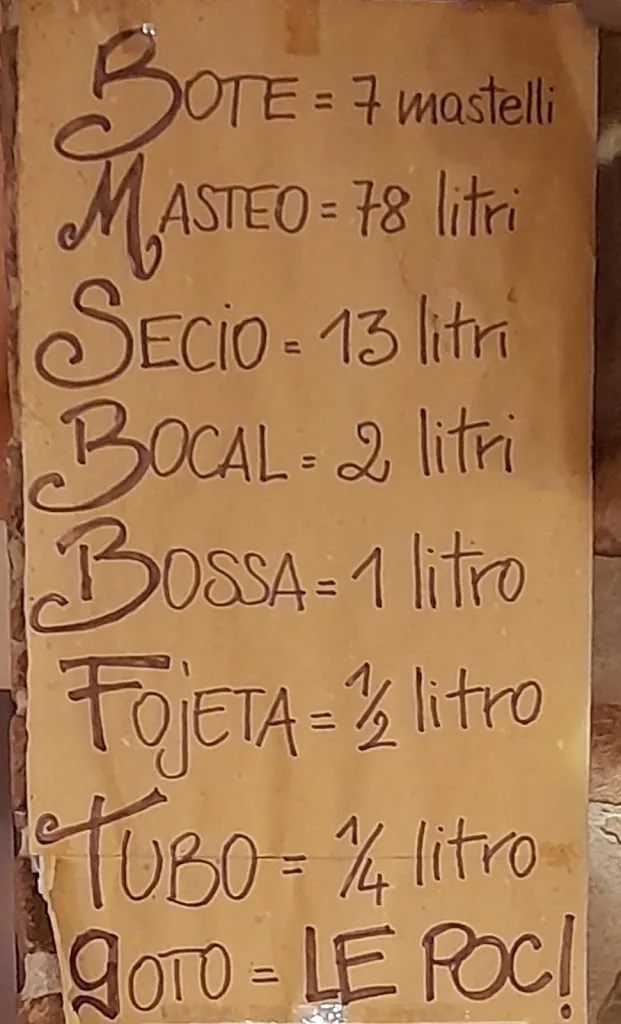 BOTE = 7 mastelli
MASTEO = 78 litri
SECiO = 13 litri
BOCAL = 2 litri
BOSSA = 1 litro
FOjETA = ½ litro
TUBO = ¼ litro
gOTO = LE POC!